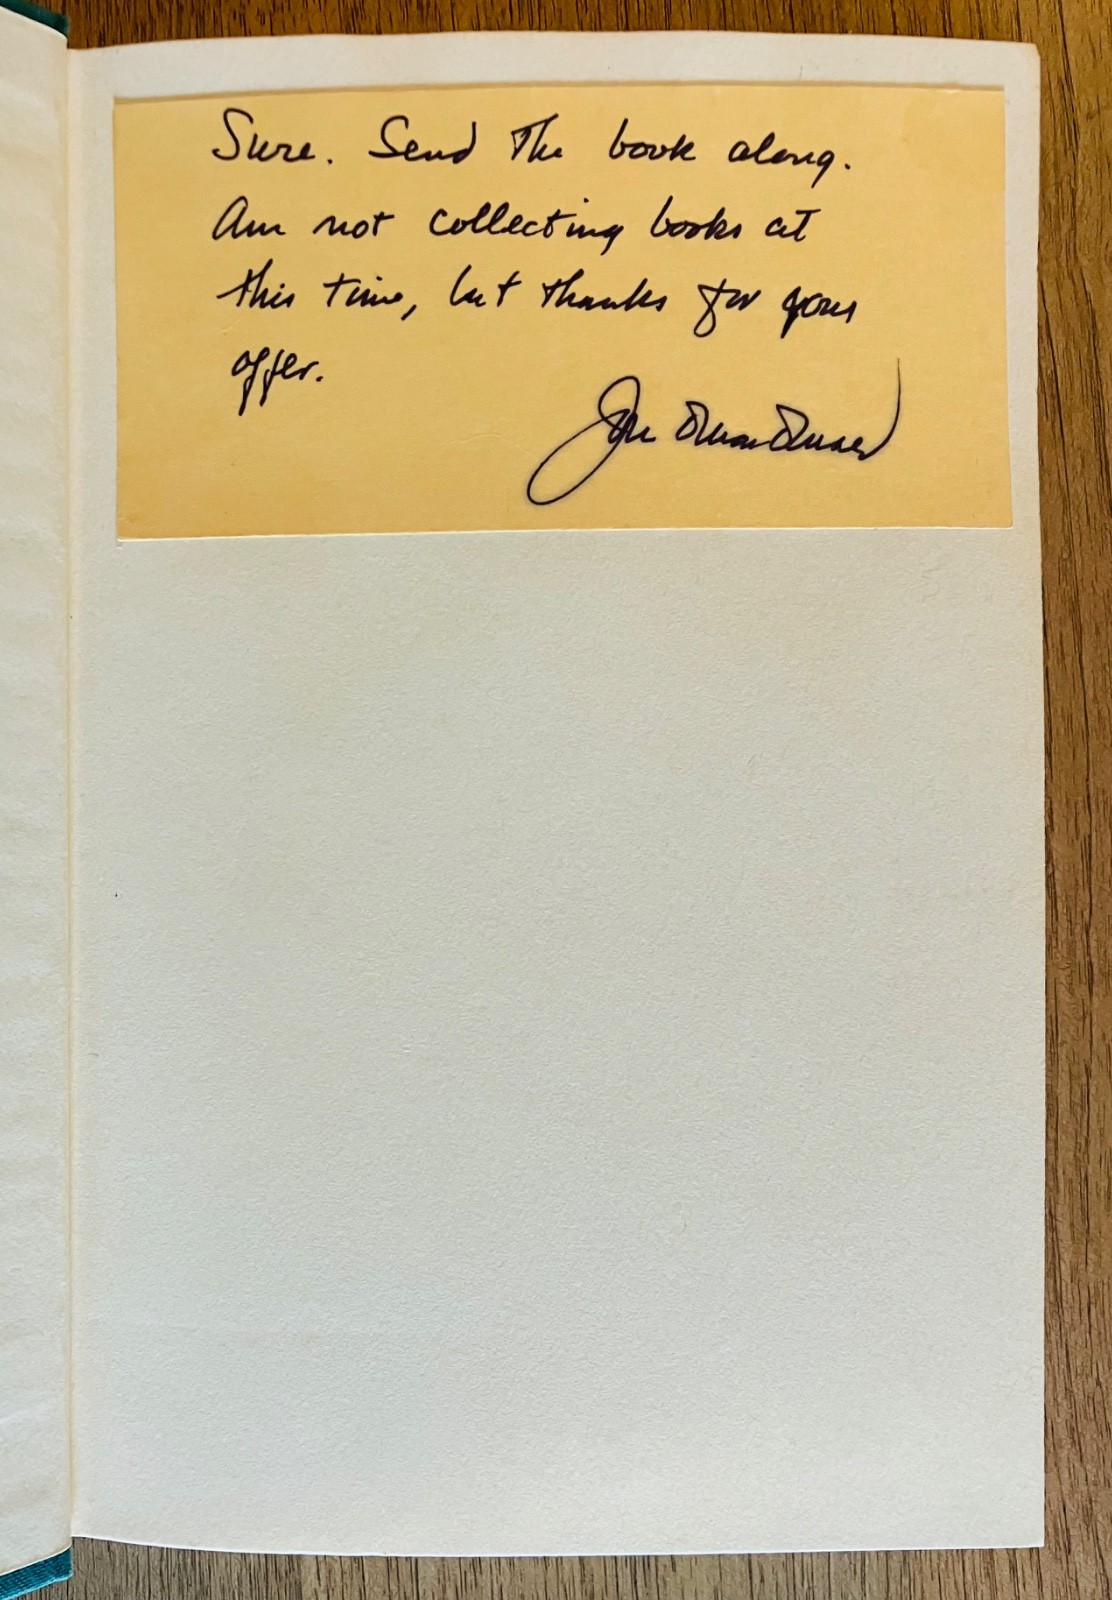 Sure. Send The book along.
Am not collecting books at
this time, but thanks for your
offer.